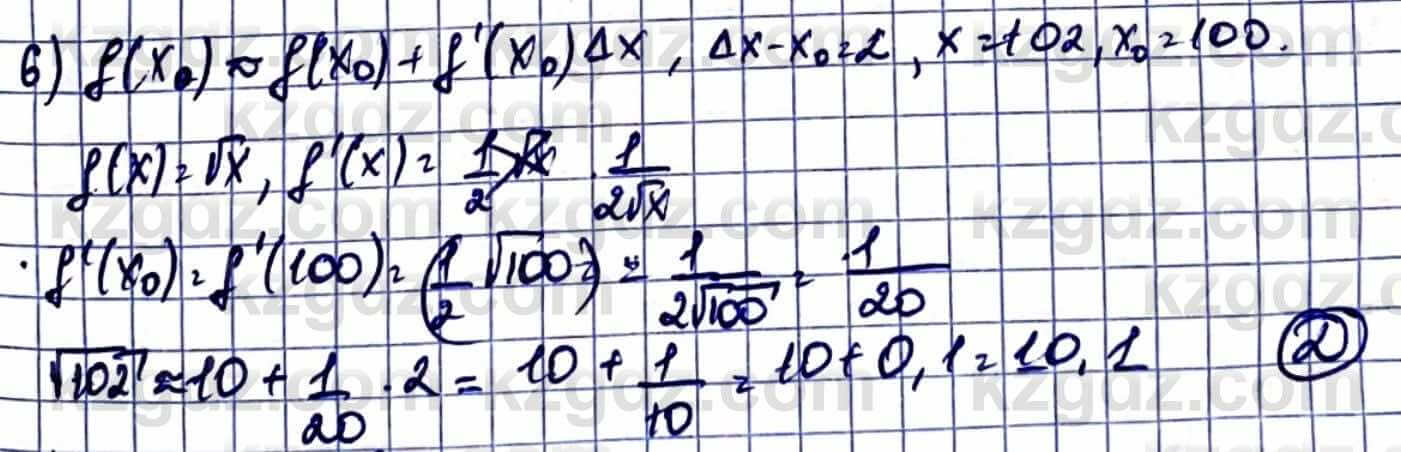 6) f(x₀) ≈ f(x₀) + f'(x₀)Δx, Δx-x₀=2, x=102, x₀=100.
f(x)=√x, f'(x)= 1/2 √x 1/(2√x)
f'(x₀)=f'(100)=(1/2 √100=) = 1/(2√100) = 1/20
√102 ≈ 10 + 1/20 · 2 = 10 + 1/10 = 10+0,1=10,1 D
kzgdz.com